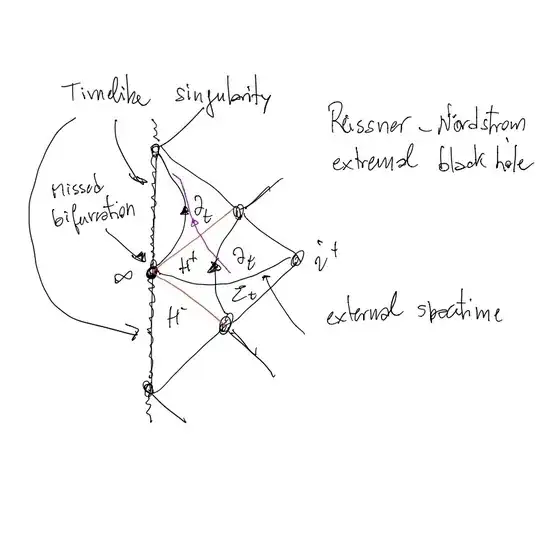 Timelike singularity
Reissner - Nordstrom
extremal black hole
Missed
bifurcation
∂t
∞
H+
∂t
i+
Σt
H-
external spactime